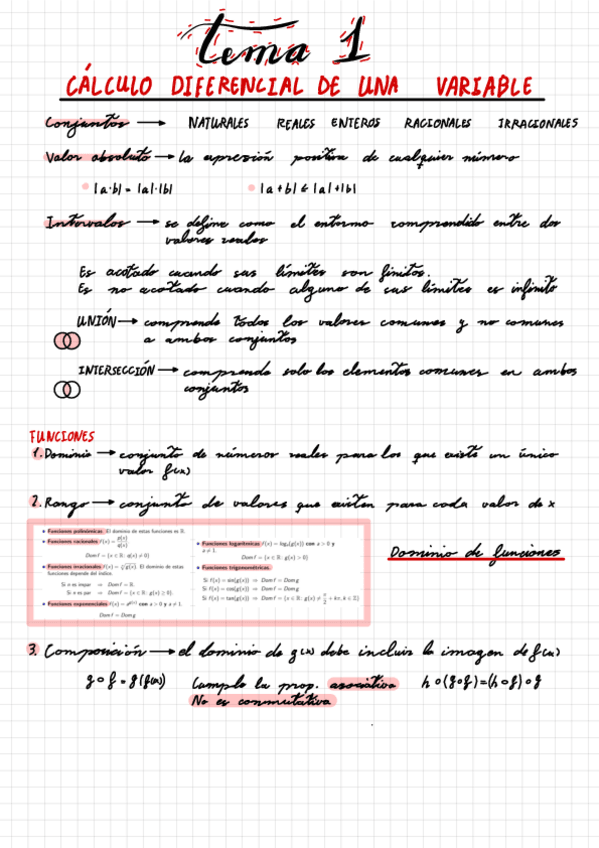 Tema 1
CÁLCULO DIFERENCIAL DE UNA VARIABLE
Conjuntos → NATURALES REALES ENTEROS RACIONALES IRRACIONALES
Valor absoluto → la expresión positiva de cualquier número
|a·b| = |a|·|b| |a+b| ≤ |a|+|b|
Intervalos → se define como el entorno comprendido entre dos
valores reales
Es acotado cuando sus límites son finitos.
Es no acotado cuando alguno de sus límites es infinito
UNIÓN → comprende todos los valores comunes y no comunes
a ambos conjuntos
INTERSECCIÓN → comprende solo los elementos comunes en ambos
conjuntos
FUNCIONES
1. Dominio → conjunto de números reales para los que existe un único
valor f(x)
2. Rango → conjunto de valores que existen para cada valor de x
Funciones polinómicas. El dominio de estas funciones es ℝ.
Funciones racionales f(x) = p(x)/q(x)
Dom f = {x ∈ ℝ: q(x) ≠ 0}
Funciones irracionales f(x) = ⁿ√g(x). El dominio de estas
funciones depende del índice.
Si n es impar ⇒ Dom f = ℝ.
Si n es par ⇒ Dom f = {x ∈ ℝ: g(x) ≥ 0}.
Funciones exponenciales f(x) = a^g(x) con a > 0 y a ≠ 1.
Dom f = Dom g
Funciones logarítmicas f(x) = logₐ(g(x)) con a > 0 y
a ≠ 1.
Dom f = {x ∈ ℝ: g(x) > 0}
Funciones trigonométricas.
Si f(x) = sen(g(x)) ⇒ Dom f = Dom g
Si f(x) = cos(g(x)) ⇒ Dom f = Dom g
Si f(x) = tan(g(x)) ⇒ Dom f = {x ∈ ℝ: g(x) ≠ π/2 + kπ, k ∈ ℤ}
Dominio de funciones
3. Composición → el dominio de g(x) debe incluir la imagen de f(x)
g∘f = g(f(x)) Cumple la prop. asociativa h∘(g∘f)=(h∘g)∘f
No es conmutativa